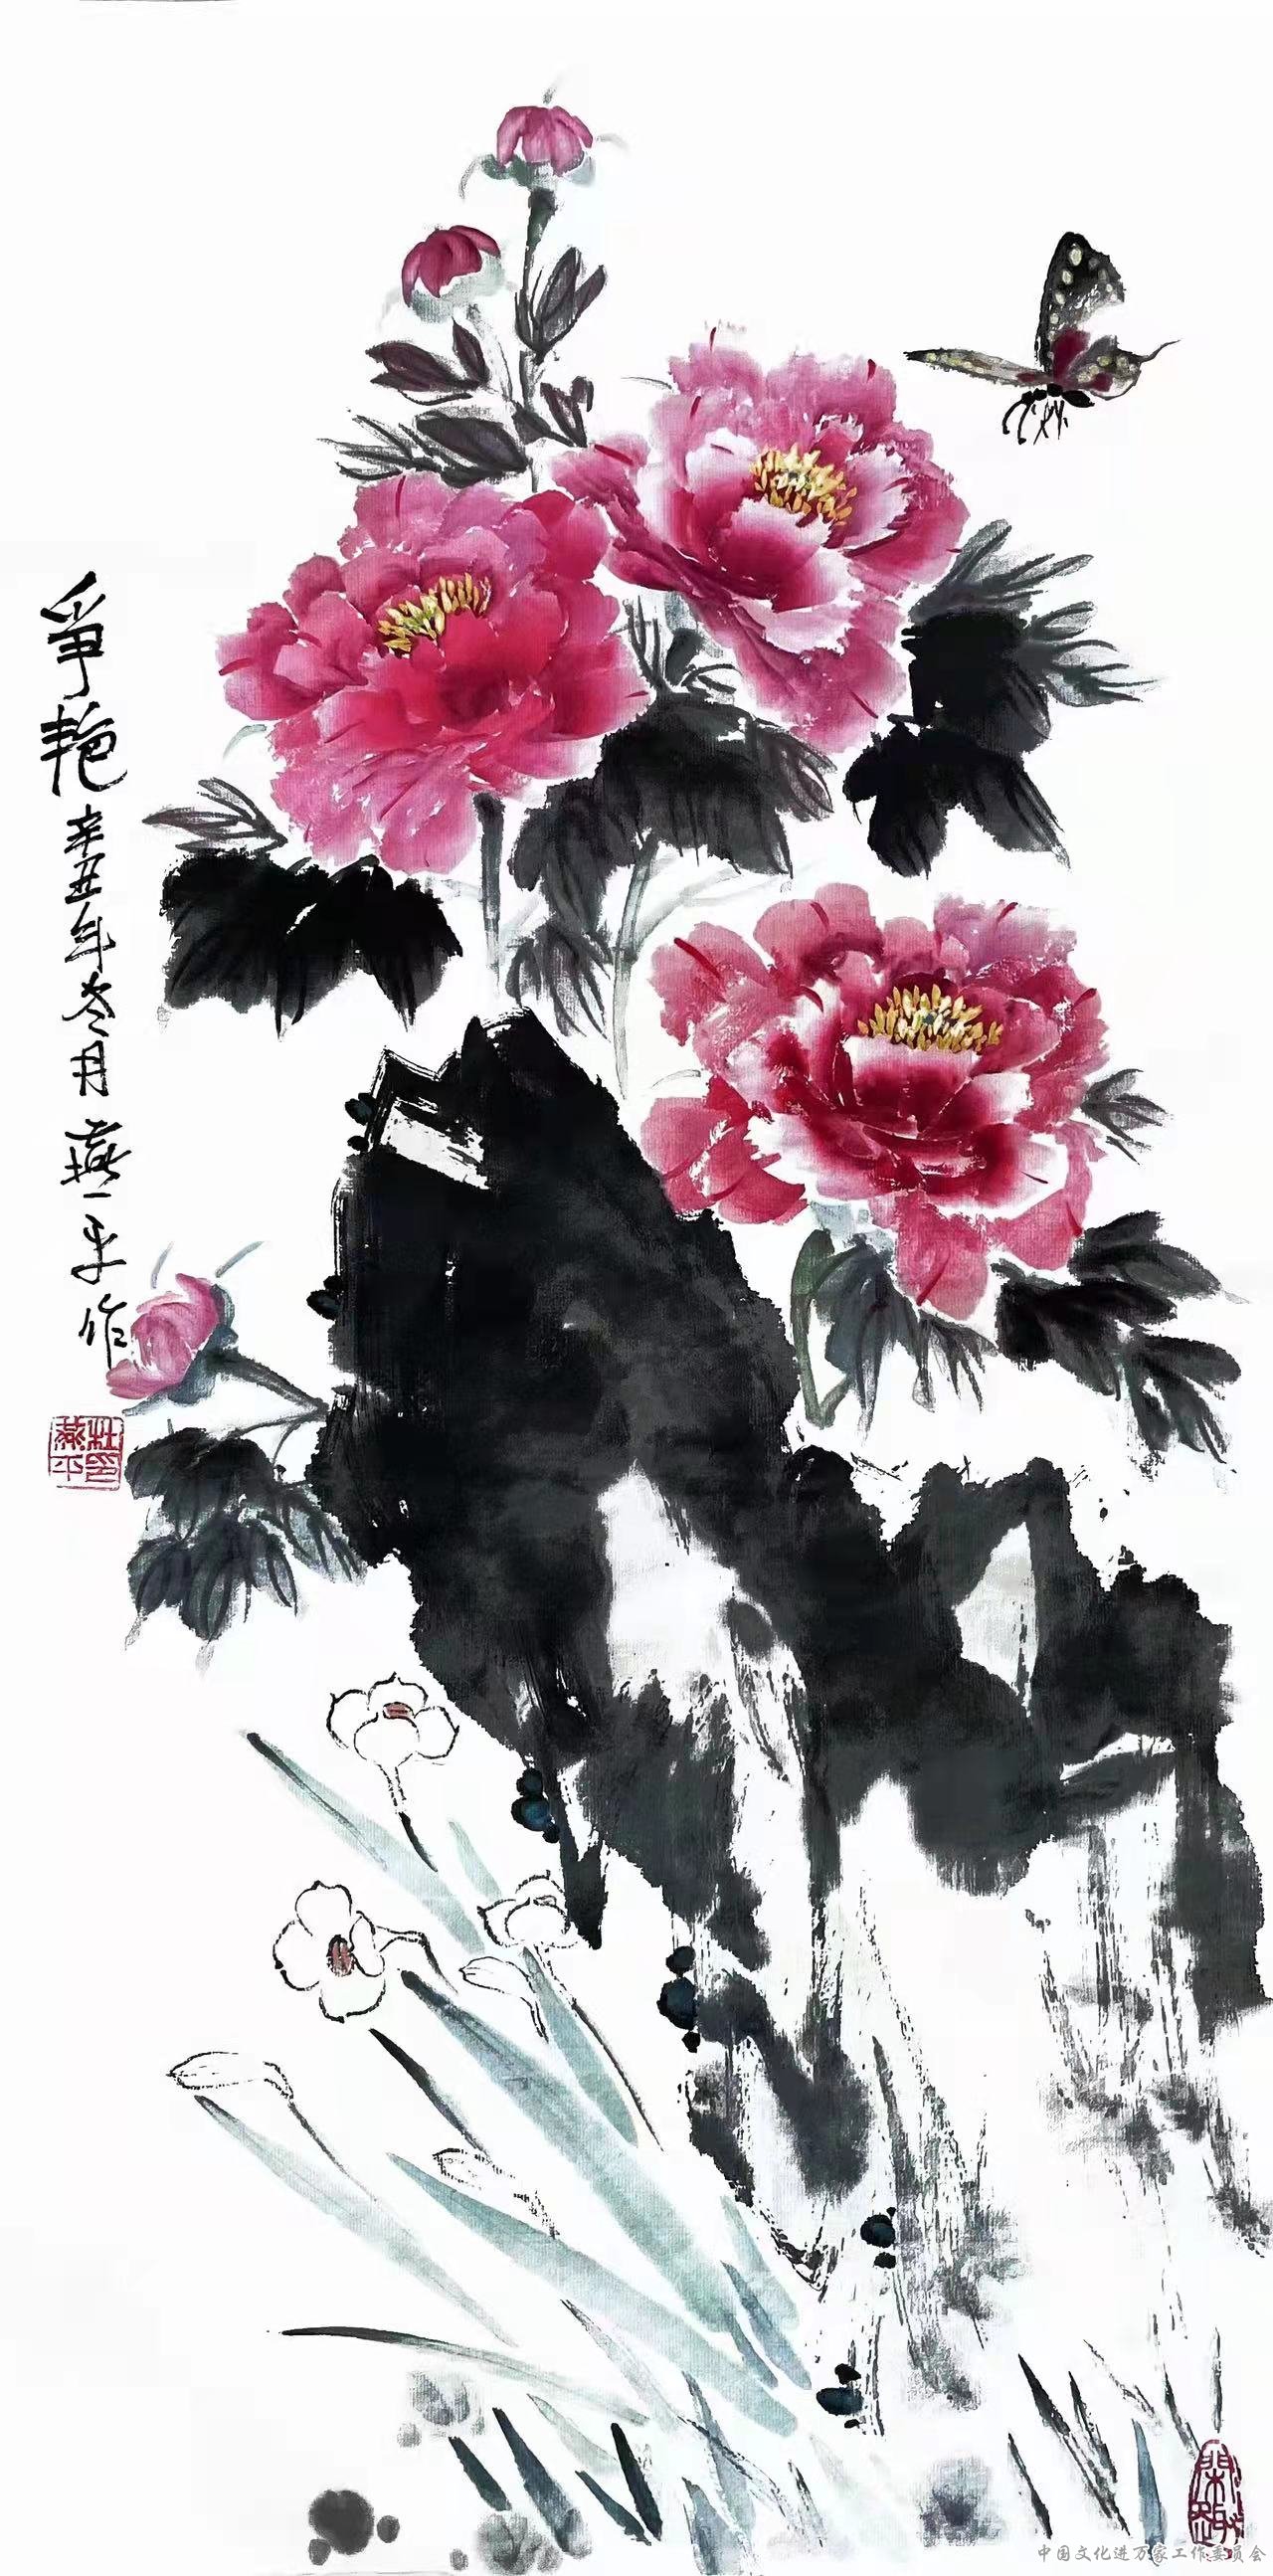 爭艳
辛丑年冬月燕平作
杜印燕平
中国文化进万家工作委员会